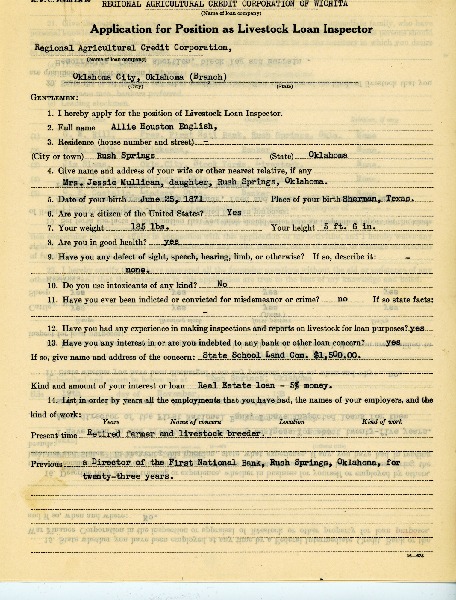 REGIONAL AGRICULTURAL CREDIT CORPORATION OF WICHITA
(Name of loan company)
Application for Position as Livestock Loan Inspector
Regional Agricultural Credit Corporation,
(Name of loan company)
Oklahoma City, Oklahoma (Branch)
(City) (State)
GENTLEMEN:
1. I hereby apply for the position of Livestock Loan Inspector.
2. Full name Allie Houston English,
3. Residence (house number and street) -
(City or town) Rush Springs (State) Oklahoma
4. Give name and address of your wife or other nearest relative, if any
Mrs. Jessie Mullican, daughter, Rush Springs, Oklahoma.
5. Date of your birth June 25, 1871 Place of your birth Sherman, Texas.
6. Are you a citizen of the United States? Yes
7. Your weight 185 lbs. Your height 5 ft. 6 in.
8. Are you in good health? yes
9. Have you any defect of sight, speech, hearing, limb, or otherwise? If so, describe it: -
none.
10. Do you use intoxicants of any kind? No
11. Have you ever been indicted or convicted for misdemeanor or crime? no If so state facts:
-
12. Have you had any experience in making inspections and reports on livestock for loan purposes? yes
13. Have you any interest in or are you indebted to any bank or other loan concern? yes
If so, give name and address of the concern: State School Land Com. $1,500.00.
Kind and amount of your interest or loan Real Estate loan - 5% money.
14. List in order by years all the employments that you have had, the names of your employers, and the
kind of work:
Years Name of concern Location Kind of work
Present time Retired farmer and livestock breeder.
Previous a Director of the First National Bank, Rush Springs, Oklahoma, for
twenty-three years.